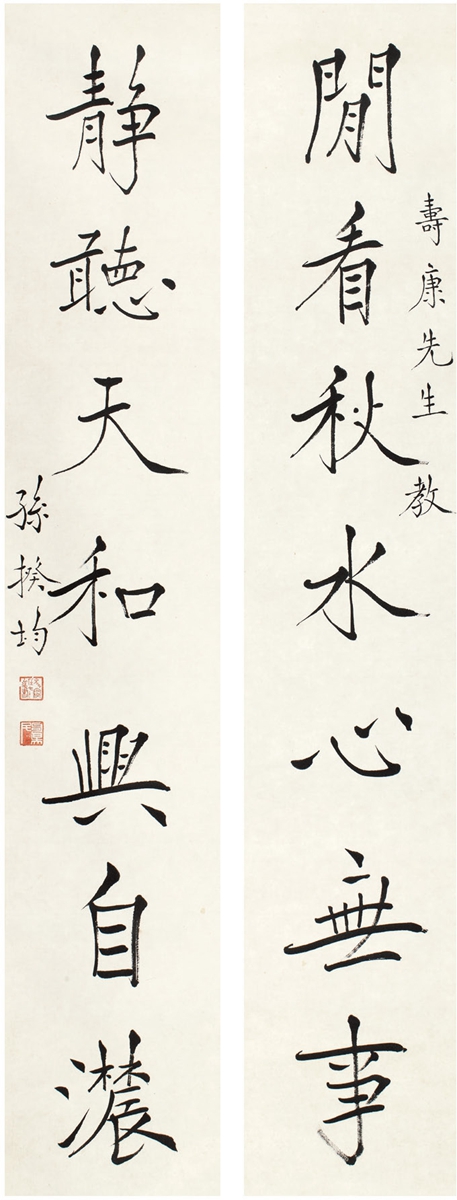 閒看秋水心無事
壽康先生 教
靜聽天和興自濃
孫揆均